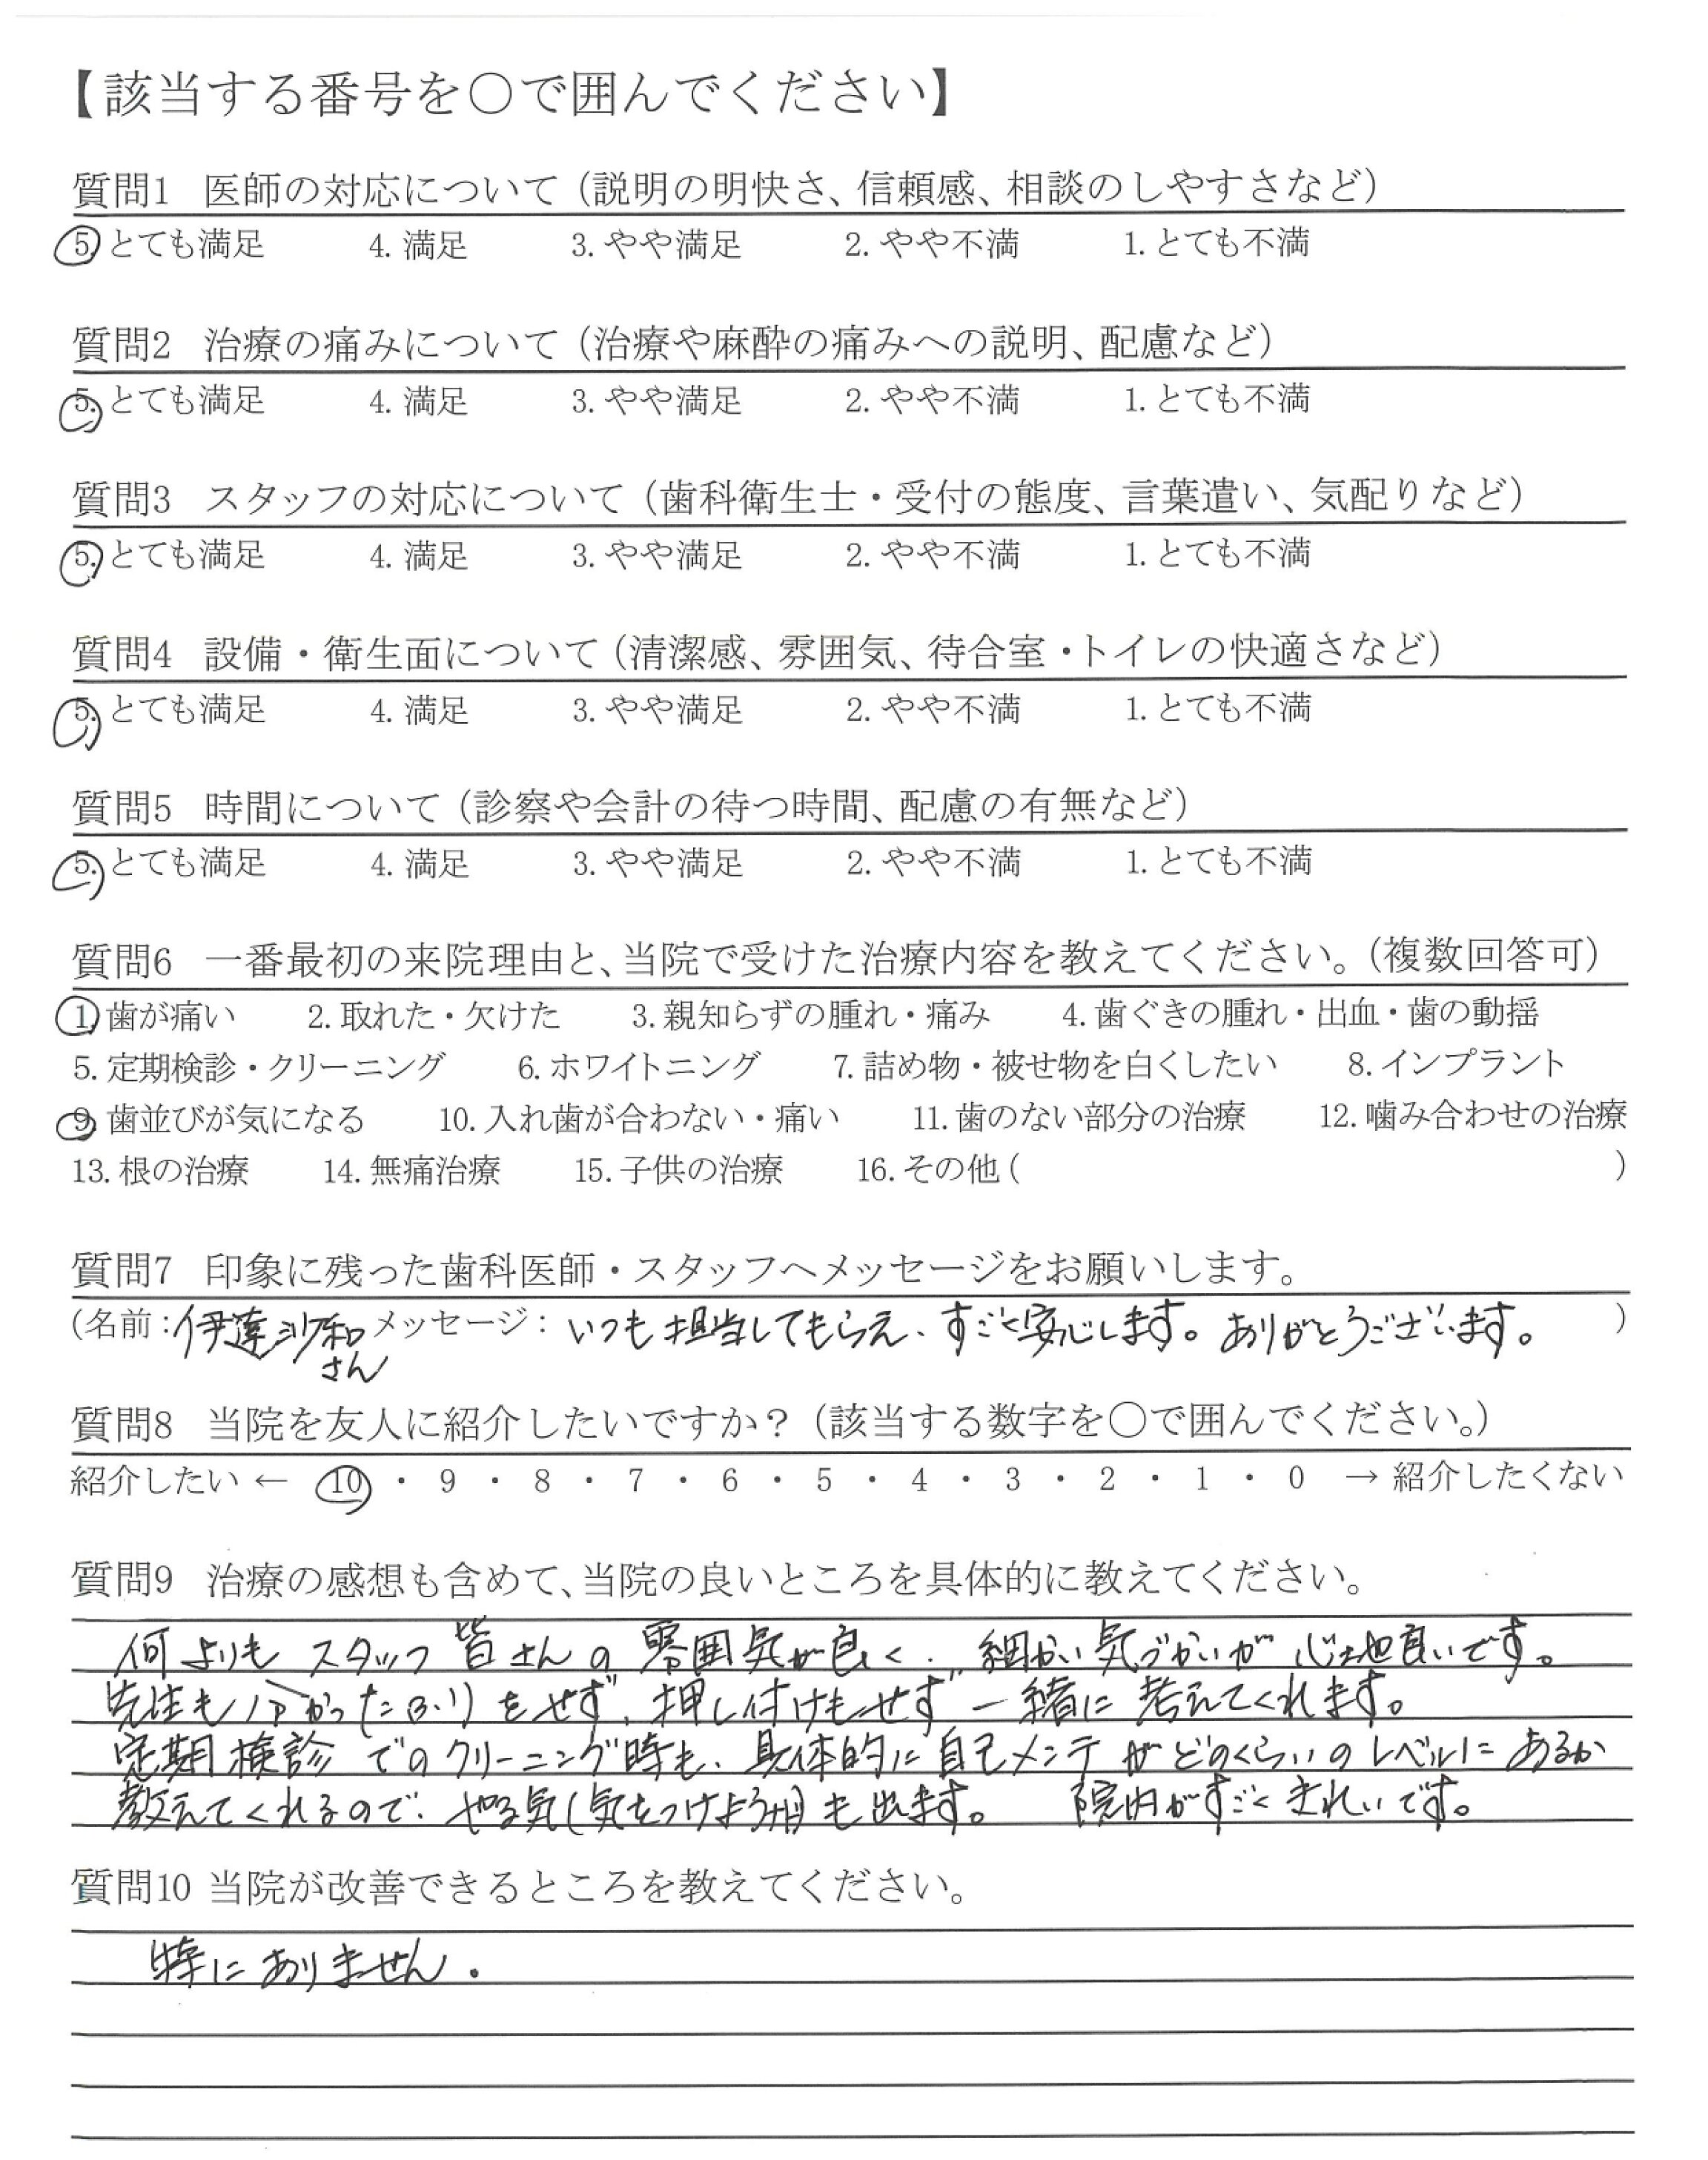 【該当する番号を○で囲んでください】
質問1 医師の対応について（説明の明快さ、信頼感、相談のしやすさなど）
5. とても満足 4. 満足 3. やや満足 2. やや不満 1. とても不満
質問2 治療の痛みについて（治療や麻酔の痛みへの説明、配慮など）
5. とても満足 4. 満足 3. やや満足 2. やや不満 1. とても不満
質問3 スタッフの対応について（歯科衛生士・受付の態度、言葉遣い、気配りなど）
5. とても満足 4. 満足 3. やや満足 2. やや不満 1. とても不満
質問4 設備・衛生面について（清潔感、雰囲気、待合室・トイレの快適さなど）
5. とても満足 4. 満足 3. やや満足 2. やや不満 1. とても不満
質問5 時間について（診察や会計の待つ時間、配慮の有無など）
5. とても満足 4. 満足 3. やや満足 2. やや不満 1. とても不満
質問6 一番最初の来院理由と、当院で受けた治療内容を教えてください。（複数回答可）
1. 歯が痛い 2. 取れた・欠けた 3. 親知らずの腫れ・痛み 4. 歯ぐきの腫れ・出血・歯の動揺
5. 定期検診・クリーニング 6. ホワイトニング 7. 詰め物・被せ物を白くしたい 8. インプラント
9. 歯並びが気になる 10. 入れ歯が合わない・痛い 11. 歯のない部分の治療 12. 噛み合わせの治療
13. 根の治療 14. 無痛治療 15. 子供の治療 16. その他（ ）
質問7 印象に残った歯科医師・スタッフへメッセージをお願いします。
（名前：伊達沙和さん メッセージ：いつも担当してもらえ、すごく安心します。ありがとうございます。）
質問8 当院を友人に紹介したいですか？（該当する数字を○で囲んでください。）
紹介したい ← 10 ・ 9 ・ 8 ・ 7 ・ 6 ・ 5 ・ 4 ・ 3 ・ 2 ・ 1 ・ 0 → 紹介したくない
質問9 治療の感想も含めて、当院の良いところを具体的に教えてください。
何よりもスタッフ皆さんの雰囲気が良く、細かい気づかいが心地良いです。
先生も分かったふりをせず、押し付けもせず一緒に考えてくれます。
定期検診でのクリーニング時も、具体的に自己メンテがどのくらいのレベルにあるか
教えてくれるので、やる気(気をつけよう)も出ます。 院内がすごくきれいです。
質問10 当院が改善できるところを教えてください。
特にありません。